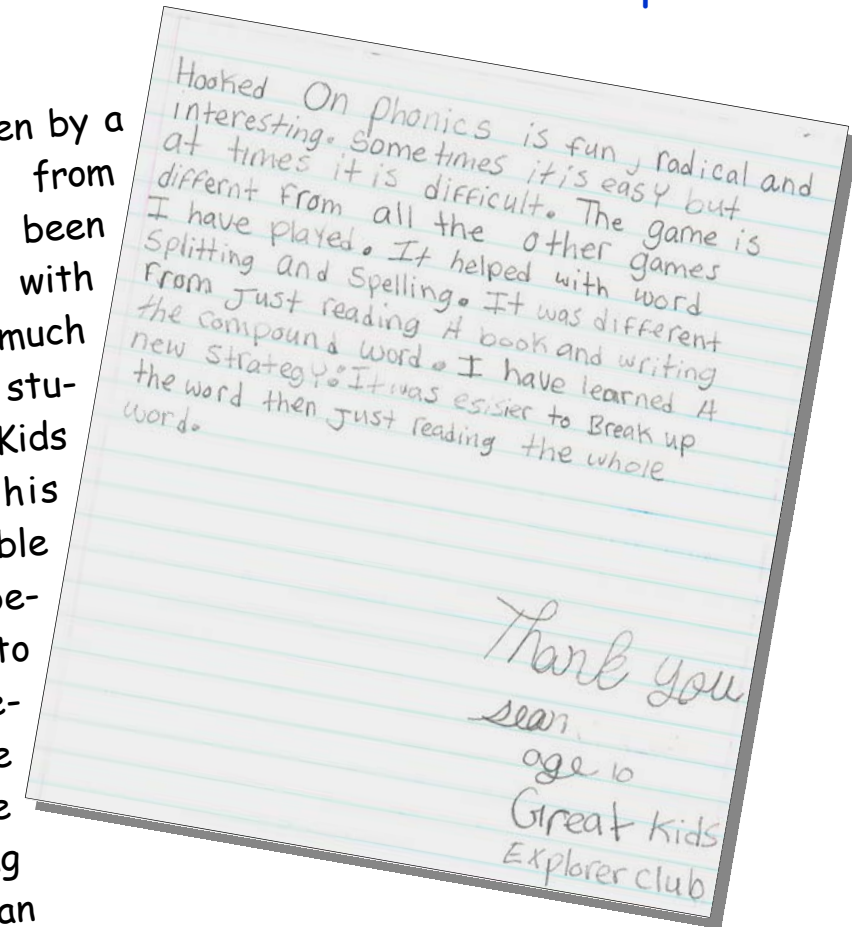 en by a
from
been
with
much
stu-
Kids
his
ble
be-
to
e-
e
e
g
an
Hooked On phonics is fun, radical and
interesting. Sometimes it is easy but
at times it is difficult. The game is
differnt from all the other games
I have played. It helped with word
Splitting and Spelling. It was different
From Just reading A book and writing
the compound word. I have learned A
new strategy: It was esisier to Break up
the word then Just reading the whole
word.
Thank you
sean
age 10
Great Kids
Explorer club